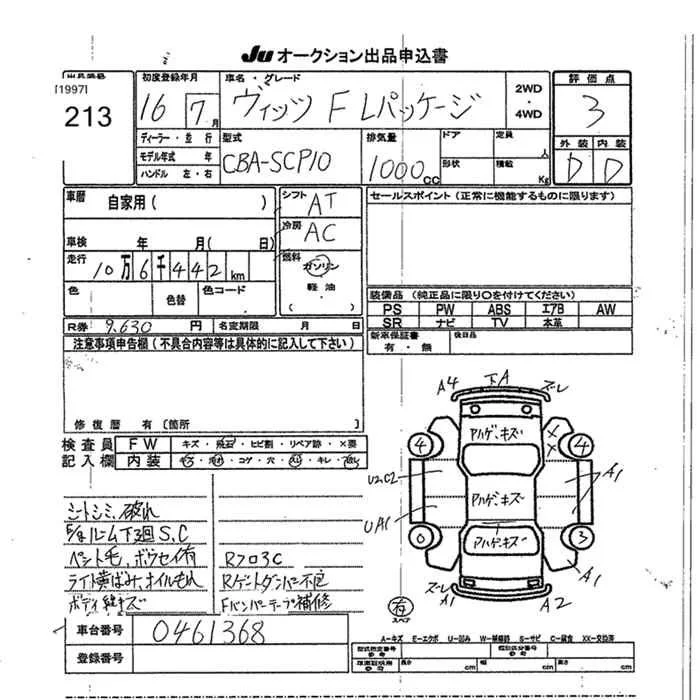 Ju オークション出品申込書
[1997]
213
初度登録年月
16 7月
車名・グレード
ヴィッツ F Lパッケージ
2WD
・
4WD
評価点
3
外装 内装
D D
ディーラー・並行
モデル年式 年
ハンドル 左・右
型式
CBA-SCP10
排気量
1000cc
ドア
定員 人
形状
積載 Kg
車歴 自家用( )
車検 年 月( 日)
走行 10万6千442km
色
色替
色コード
シフト AT
冷房 AC
燃料
ガソリン
軽油
( )
セールスポイント(正常に機能するものに限ります)
装備品(純正品に限り○を付けてください)
PS PW ABS エアB AW
SR ナビ TV 本革
新車保証書
有・無
後日品
R券 9,630円
名変期限 月 日
注意事項申告欄(不具合内容等は具体的に記入して下さい)
修復歴 有〔箇所 〕
検査員
記入欄
FW キズ・飛石・ヒビ割・リペア跡・×要
内装 コゲ・穴・キレ
シートシミ、破れ
ルーム下3回 S.C
ペント毛、ボウセイ有
ライト黄ばみ、オイルもれ
Rフロ3C
Rゲートダンパー不良
Fバンパーテープ補修
車台番号 0461368
登録番号
A4 下A ズレ
ハゲ、キズ
4 4
X X
U2、C2
ハゲ、キズ
A1
UA1
0 3
ハゲ、キズ
A1
ズレ A1
A2
有
スペア
A−キズ E−エクボ U−凹み W−補修跡 S−サビ C−腐食 XX−交換済
型式指定番号
参考
類別区分番号
参考
長さ cm 幅 cm 高さ cm